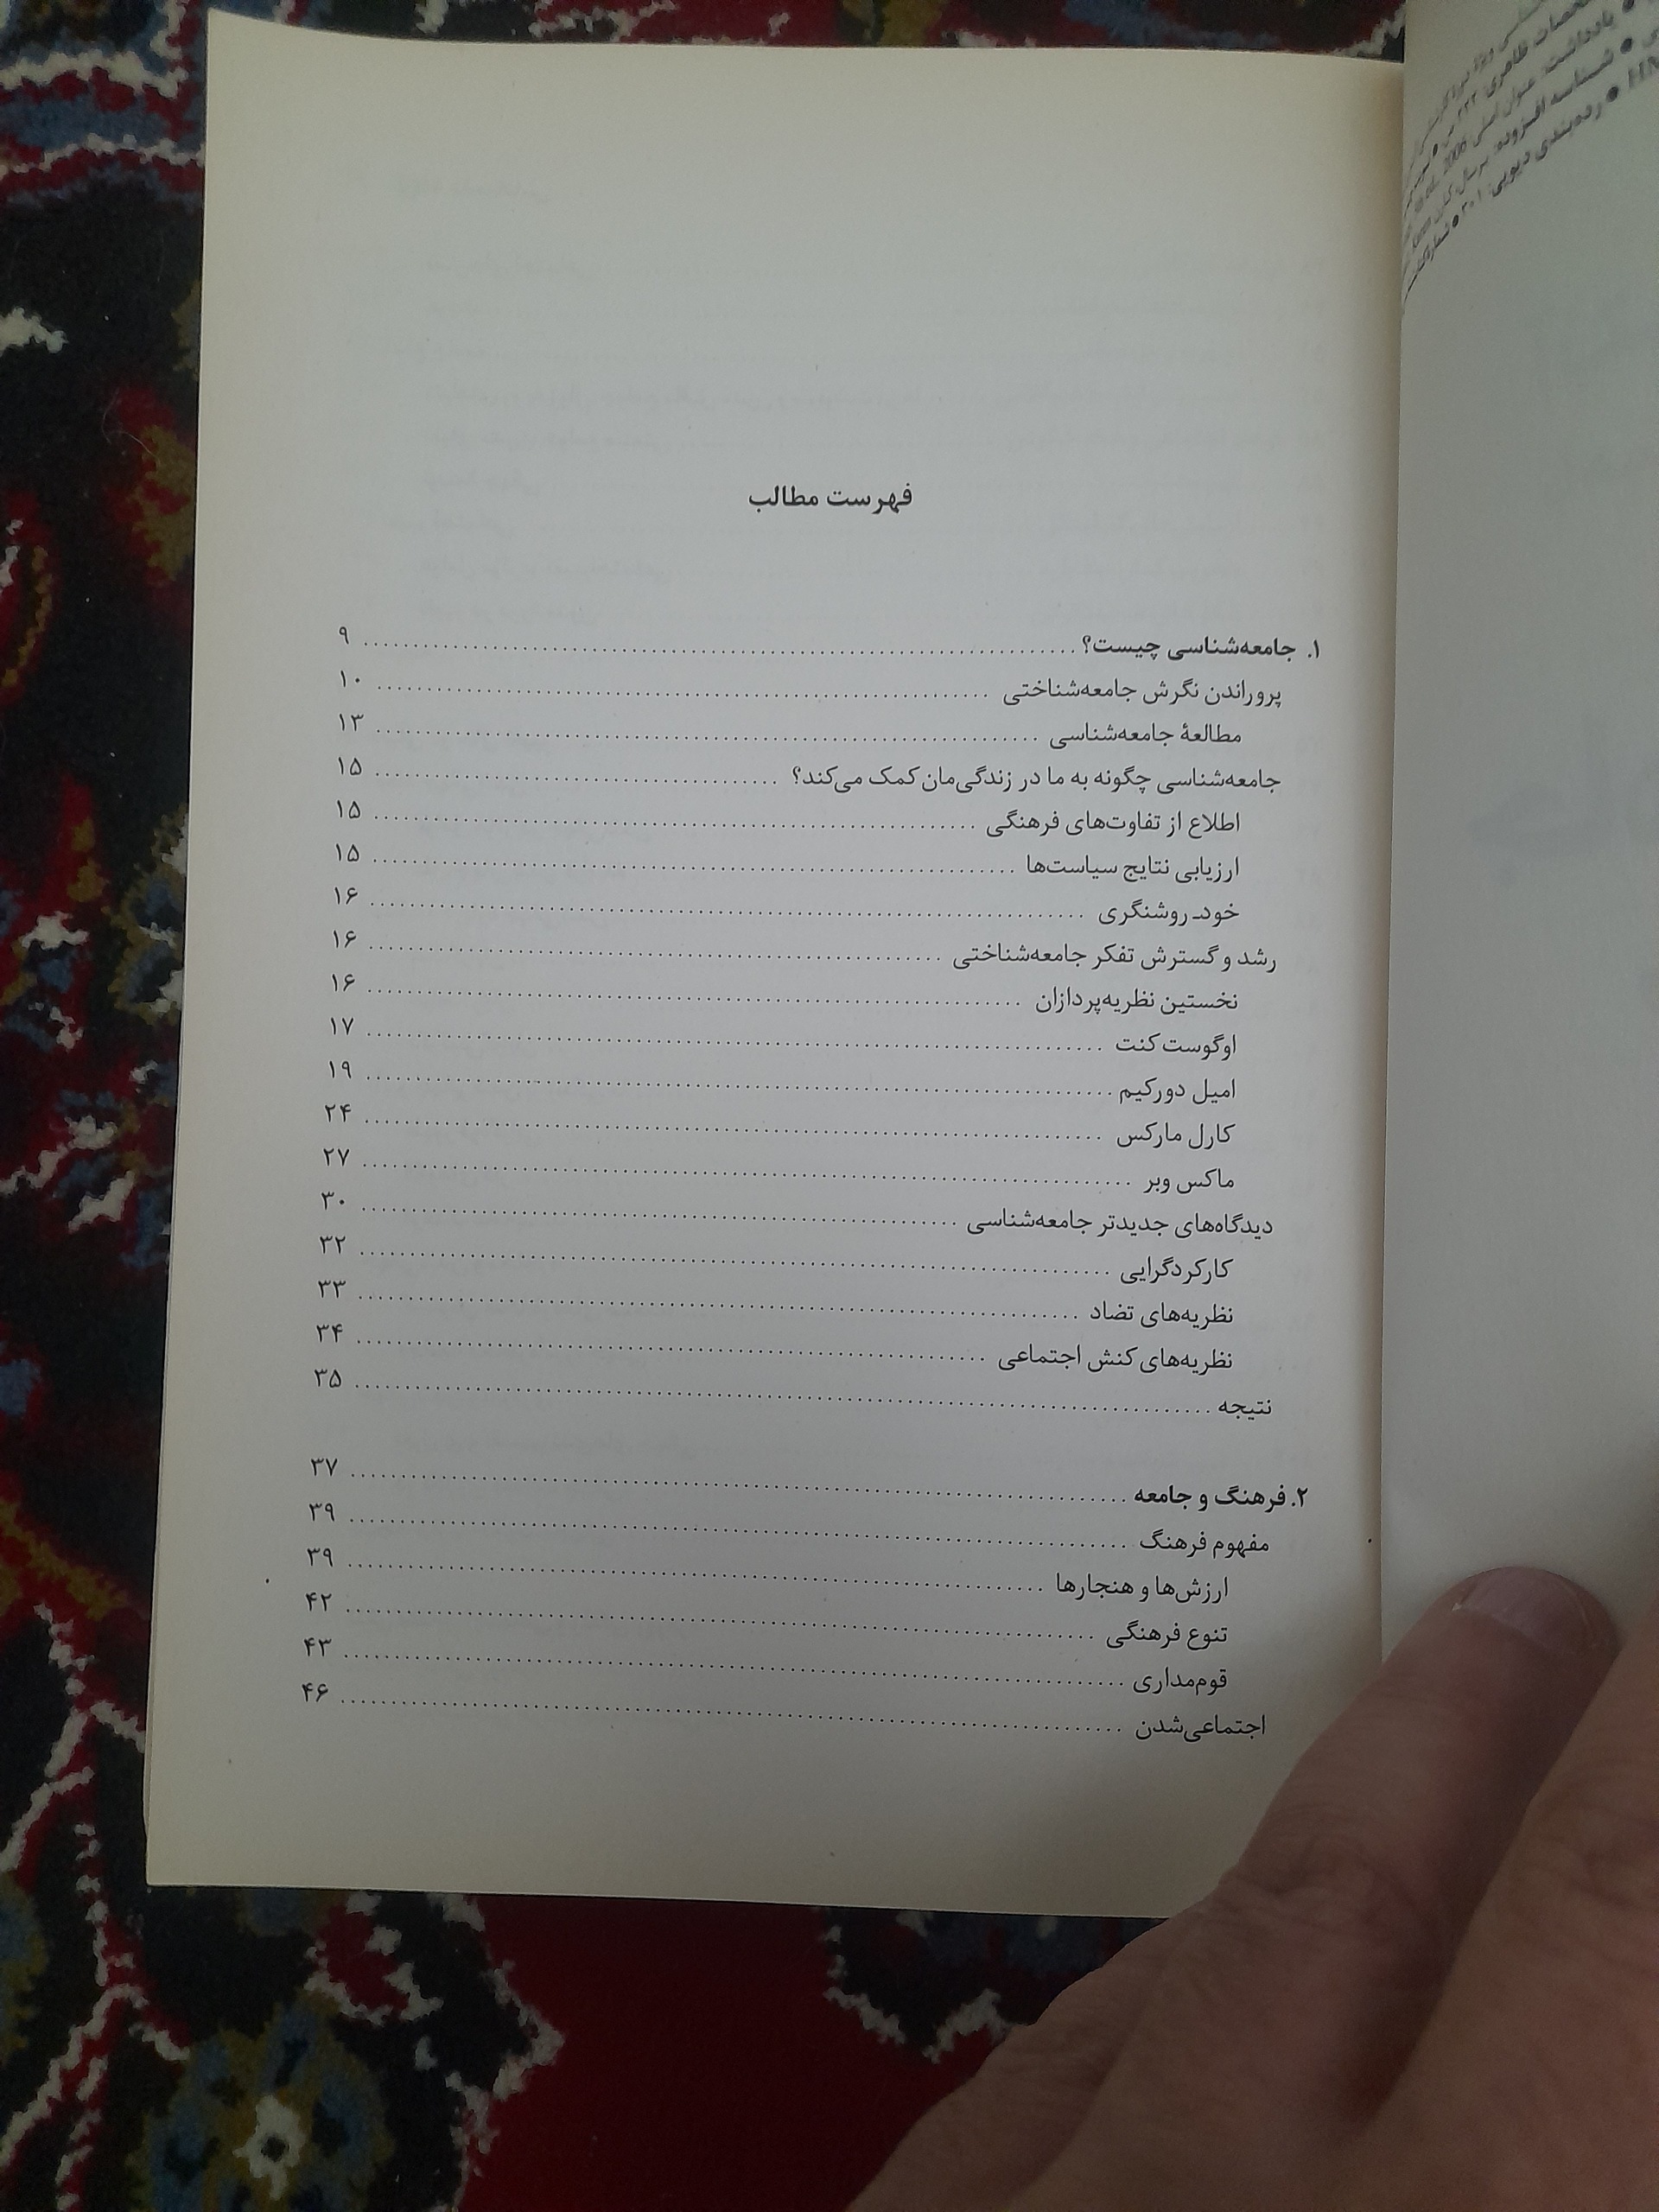 فهرست مطالب
۱. جامعه‌شناسی چیست؟ ۹
پروراندن نگرش جامعه‌شناختی ۱۰
مطالعهٔ جامعه‌شناسی ۱۳
جامعه‌شناسی چگونه به ما در زندگی‌مان کمک می‌کند؟ ۱۵
اطلاع از تفاوت‌های فرهنگی ۱۵
ارزیابی نتایج سیاست‌ها ۱۵
خودـ روشنگری ۱۶
رشد و گسترش تفکر جامعه‌شناختی ۱۶
نخستین نظریه‌پردازان ۱۶
اوگوست کنت ۱۷
امیل دورکیم ۱۹
کارل مارکس ۲۴
ماکس وبر ۲۷
دیدگاه‌های جدیدتر جامعه‌شناسی ۳۰
کارکردگرایی ۳۲
نظریه‌های تضاد ۳۳
نظریه‌های کنش اجتماعی ۳۴
نتیجه ۳۵
۲. فرهنگ و جامعه ۳۷
مفهوم فرهنگ ۳۹
ارزش‌ها و هنجارها ۳۹
تنوع فرهنگی ۴۲
قوم‌مداری ۴۳
اجتماعی‌شدن ۴۶
ظاهری: ۲۲۲ ص
یادداشت: عنوان اصلی 2006
شناسه افزوده:
رده‌بندی دیویی: ۳۰۱